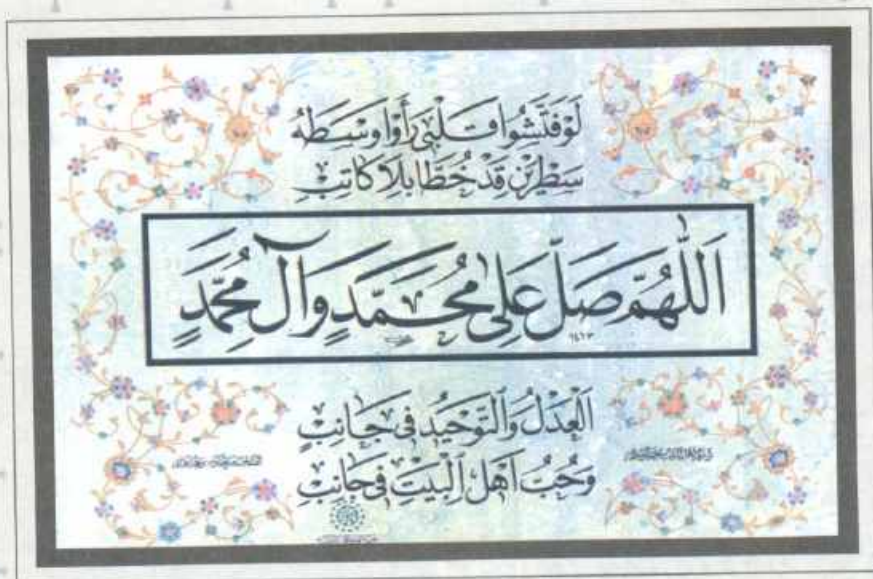 لَوْ فَتَّشُوا قَلْبِي رَأَوْا وَسَطَهُ
سَطْرَيْنِ قَدْ خُطَّا بِلَا كَاتِبِ
اَللّٰهُمَّ صَلِّ عَلٰى مُحَمَّدٍ وَآلِ مُحَمَّدٍ
١٤١٣
اَلْعَدْلُ وَالتَّوْحِيْدُ فِي جَانِبٍ
وَحُبُّ اَهْلِ الْبَيْتِ فِي جَانِبِ